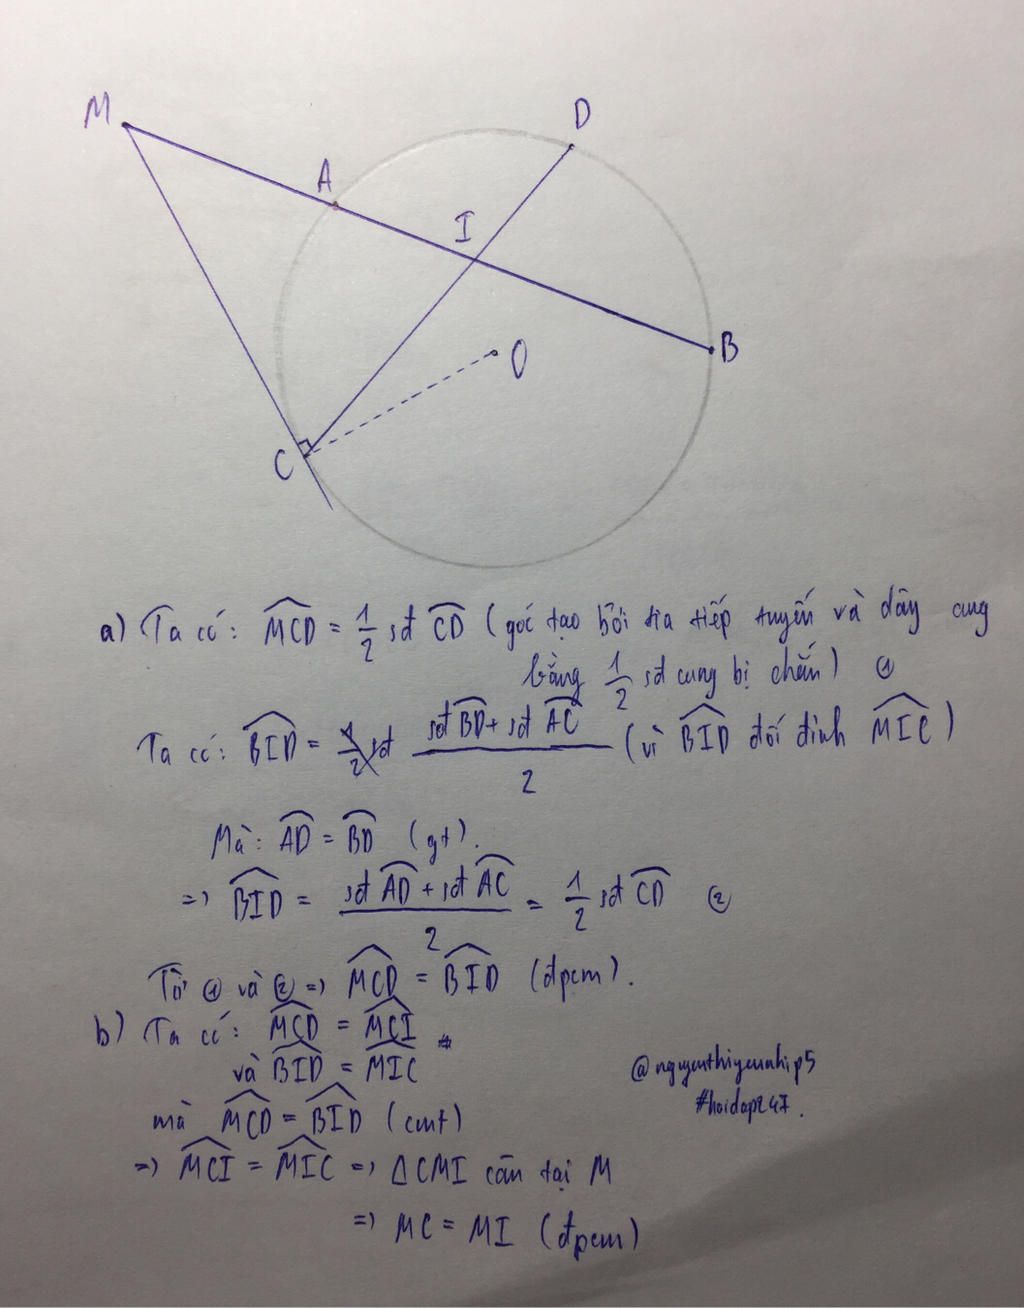 M
D
A
I
B
O
C
a) Ta có: MCD = 1/2 sđ CD (góc tạo bởi tia tiếp tuyến và dây cung
bằng 1/2 sđ cung bị chắn) ①
Ta có: BID = 1/2 sđ (sđ BD + sđ AC)/2 (vì BID đối đỉnh MIC)
Mà: AD = BD (gt).
=> BID = (sđ AD + sđ AC)/2 = 1/2 sđ CD ②
Từ ① và ② => MCD = BID (đpcm).
b) Ta có: MCD = MCI
và BID = MIC
mà MCD = BID (cmt)
=> MCI = MIC => ΔCMI cân tại M
=> MC = MI (đpcm)
#hoidap247.